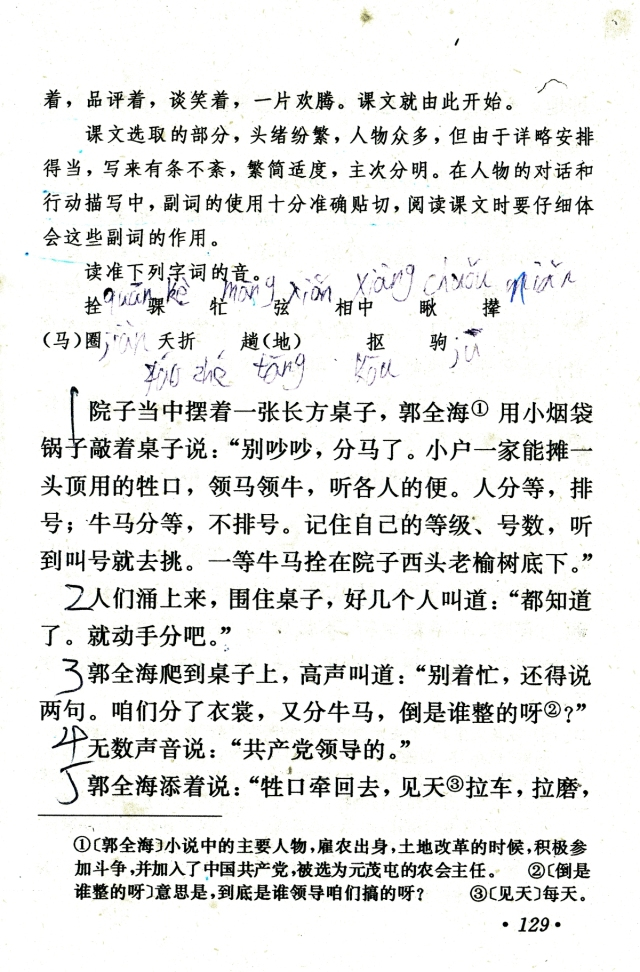 着，品评着，谈笑着，一片欢腾。课文就由此开始。
课文选取的部分，头绪纷繁，人物众多，但由于详略安排
得当，写来有条不紊，繁简适度，主次分明。在人物的对话和
行动描写中，副词的使用十分准确贴切，阅读课文时要仔细体
会这些副词的作用。
读准下列字词的音。
quān kè māng xián xiàng chuǒu niǎn
拴 骒 牤 弦 相中 瞅 撵
(马)圈 juàn 夭折 趟(地) 抠 驹 jū
yāo zhé tāng kōu
1 院子当中摆着一张长方桌子，郭全海① 用小烟袋
锅子敲着桌子说：“别吵吵，分马了。小户一家能摊一
头顶用的牲口，领马领牛，听各人的便。人分等，排
号；牛马分等，不排号。记住自己的等级、号数，听
到叫号就去挑。一等牛马拴在院子西头老榆树底下。”
2 人们涌上来，围住桌子，好几个人叫道：“都知道
了。就动手分吧。”
3 郭全海爬到桌子上，高声叫道：“别着忙，还得说
两句。咱们分了衣裳，又分牛马，倒是谁整的呀②？”
4 无数声音说：“共产党领导的。”
5 郭全海添着说：“牲口牵回去，见天③拉车，拉磨，
①〔郭全海〕小说中的主要人物，雇农出身，土地改革的时候，积极参
加斗争，并加入了中国共产党，被选为元茂屯的农会主任。 ②〔倒是
谁整的呀〕意思是，到底是谁领导咱们搞的呀？ ③〔见天〕每天。
·129·